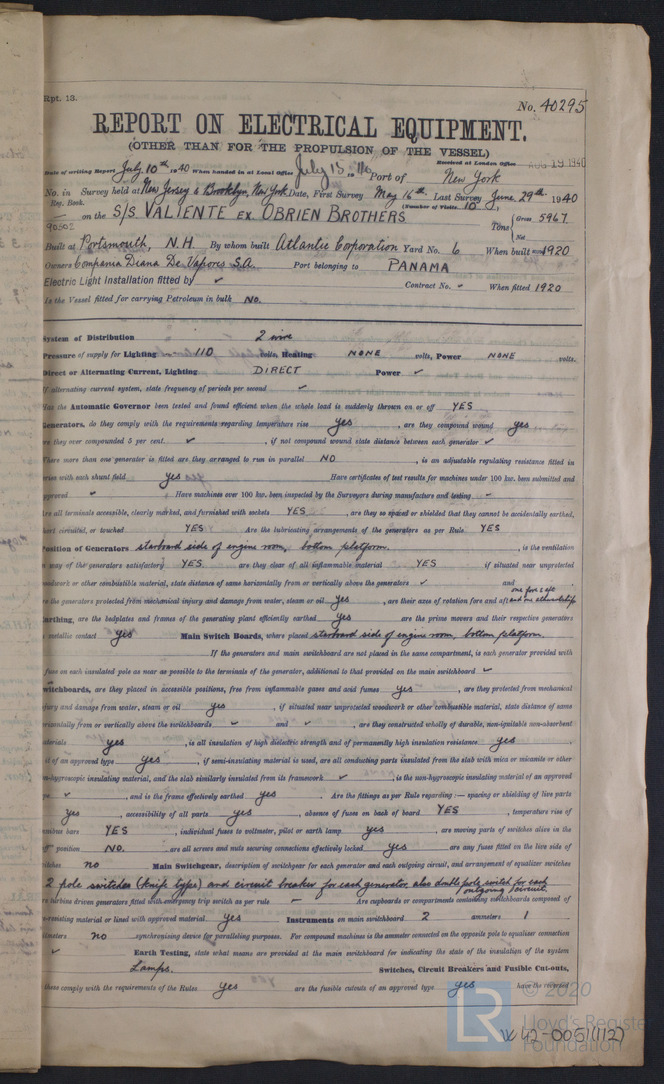 Rpt. 13.
No. 40295
REPORT ON ELECTRICAL EQUIPMENT.
(OTHER THAN FOR THE PROPULSION OF THE VESSEL)
Received at London Office AUG 19 1940
Date of writing Report July 10th 1940 When handed in at Local Office July 15 1940 Port of New York
No. in Survey held at New Jersey & Brooklyn, New York Date, First Survey May 16th Last Survey June 29th 1940
Reg. Book. (Number of Visits 10)
90502 on the S/S VALIENTE EX OBRIEN BROTHERS Tons { Gross 5967
Net
Built at Portsmouth, N.H. By whom built Atlantic Corporation Yard No. 6 When built 1920
Owners Compania Diana De Vapores S.A. Port belonging to PANAMA
Electric Light Installation fitted by ✓ Contract No. ✓ When fitted 1920
Is the Vessel fitted for carrying Petroleum in bulk NO.
System of Distribution 2 wire
Pressure of supply for Lighting 110 volts, Heating NONE volts, Power NONE volts.
Direct or Alternating Current, Lighting DIRECT Power ✓
If alternating current system, state frequency of periods per second ✓
Has the Automatic Governor been tested and found efficient when the whole load is suddenly thrown on or off YES
Generators, do they comply with the requirements regarding temperature rise yes, are they compound wound yes
are they over compounded 5 per cent. ✓, if not compound wound state distance between each generator ✓
Where more than one generator is fitted are they arranged to run in parallel NO, is an adjustable regulating resistance fitted in
series with each shunt field yes Have certificates of test results for machines under 100 kw. been submitted and
approved ✓ Have machines over 100 kw. been inspected by the Surveyors during manufacture and testing ✓
Are all terminals accessible, clearly marked, and furnished with sockets YES, are they so spaced or shielded that they cannot be accidentally earthed,
short circuited, or touched YES Are the lubricating arrangements of the generators as per Rule YES
Position of Generators starboard side of engine room, bottom platform., is the ventilation
in way of the generators satisfactory YES are they clear of all inflammable material YES if situated near unprotected
woodwork or other combustible material, state distance of same horizontally from or vertically above the generators ✓ and
are the generators protected from mechanical injury and damage from water, steam or oil yes, are their axes of rotation fore and aft one fore & aft and one athwartship
Earthing, are the bedplates and frames of the generating plant efficiently earthed yes are the prime movers and their respective generators
in metallic contact yes Main Switch Boards, where placed starboard side of engine room, bottom platform.
If the generators and main switchboard are not placed in the same compartment, is each generator provided with
fuse on each insulated pole as near as possible to the terminals of the generator, additional to that provided on the main switchboard ✓
Switchboards, are they placed in accessible positions, free from inflammable gases and acid fumes yes, are they protected from mechanical
injury and damage from water, steam or oil yes, if situated near unprotected woodwork or other combustible material, state distance of same
horizontally from or vertically above the switchboards ✓ and ✓, are they constructed wholly of durable, non-ignitable non-absorbent
materials yes, is all insulation of high dielectric strength and of permanently high insulation resistance yes,
is it of an approved type yes, if semi-insulating material is used, are all conducting parts insulated from the slab with mica or micanite or other
non-hygroscopic insulating material, and the slab similarly insulated from its framework ✓, is the non-hygroscopic insulating material of an approved
type ✓, and is the frame effectively earthed yes. Are the fittings as per Rule regarding:— spacing or shielding of live parts
yes, accessibility of all parts yes, absence of fuses on back of board YES, temperature rise of
omnibus bars YES, individual fuses to voltmeter, pilot or earth lamp yes, are moving parts of switches alive in the
"off" position NO. are all screws and nuts securing connections effectively locked yes are any fuses fitted on the live side of
switches no Main Switchgear, description of switchgear for each generator and each outgoing circuit, and arrangement of equalizer switches
2 pole switches (knife types) and circuit breaker for each generator, also double pole switch for each outgoing circuit.
Are turbine driven generators fitted with emergency trip switch as per rule — Are cupboards or compartments containing switchboards composed of
fire-resisting material or lined with approved material yes Instruments on main switchboard 2 ammeters 1
voltmeters no synchronising device for paralleling purposes. For compound machines is the ammeter connected on the opposite pole to equaliser connection
✓ Earth Testing, state what means are provided at the main switchboard for indicating the state of the insulation of the system
Lamps. Switches, Circuit Breakers and Fusible Cut-outs,
these comply with the requirements of the Rules yes are the fusible cutouts of an approved type yes have the reversed
LR © 2020
Lloyd's Register
Foundation
W42-0051(1/2)